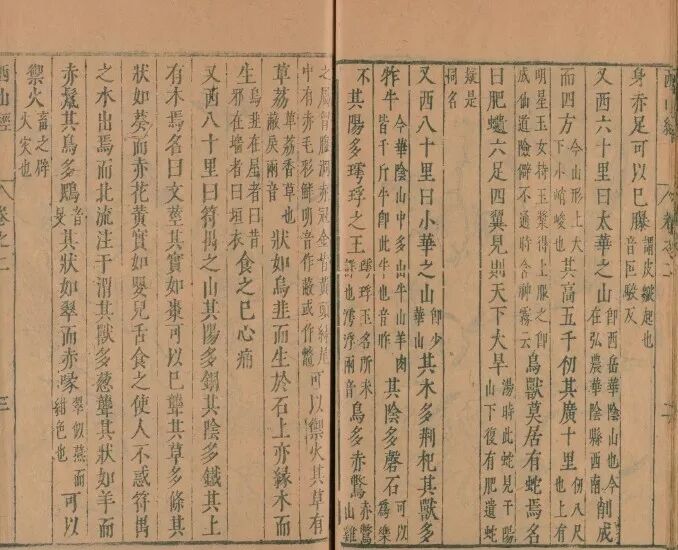 西山經 卷之二 二
身赤足可以已𦢊 謂皮皴起也音叵駮反
又西六十里曰太華之山 即西岳華陰山也今在弘農華陰縣西南 削成
而四方 今山形上大下小峭峻也 其高五千仞其廣十里 仞八尺也上有
明星玉女持玉漿得上服之即成仙道險僻不通詩含神霧云 鳥獸莫居有蛇焉名
曰肥𧔥六足四翼見則天下大旱 湯時此蛇見于陽山下復有肥遺蛇
疑是同名
又西八十里曰小華之山 即少華山 其木多荊杞其獸多
㸲牛 今華陰山中多山牛山羊肉皆千斤牛即此牛也音昨 其陰多磬石 可以為樂
石 其陽多㻬琈之玉 㻬琈玉名所未詳也滹浮兩音 鳥多赤鷩 赤鷩山雞
之屬胷腹洞赤冠金背黃頭綠尾中有赤毛彩鮮明音作蔽或作鱉 可以禦火其草有
草荔 草荔香草也蔽戾兩音 狀如烏韭而生於石上亦緣木而
生 烏韭在屋者曰昔邪在墻者曰垣衣 食之已心痛
又西八十里曰符禺之山其陽多銅其陰多鐵其上
有木焉名曰文莖其實如棗可以已聾其草多條其
狀如葵而赤花黃實如嬰兒舌食之使人不惑符禺
之水出焉而北流注于渭其獸多葱聾其狀如羊而
赤鬣其鳥多鴖 音旻 其狀如翠而赤喙 翠似燕而紺色也 可以
禦火 畜之辟火災也
西山經 卷之二 三